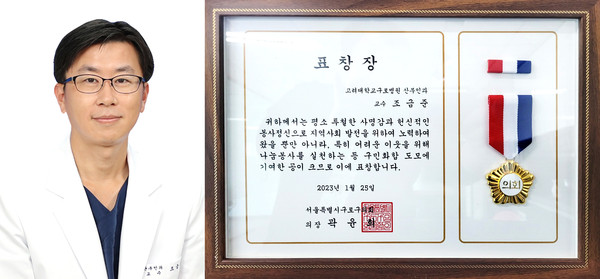 표창장
고려대학교구로병원 산부인과
교수 조금준
귀하에서는 평소 투철한 사명감과 헌신적인
봉사정신으로 지역사회 발전을 위하여 노력하여
왔을 뿐만 아니라, 특히 어려운 이웃을 위해
나눔봉사를 실천하는 등 구민화합 도모에
기여한 공이 크므로 이에 표창합니다.
2023년 1월 25일
서울특별시구로구의회
의장 곽윤희
의회
산부인과
교수 조